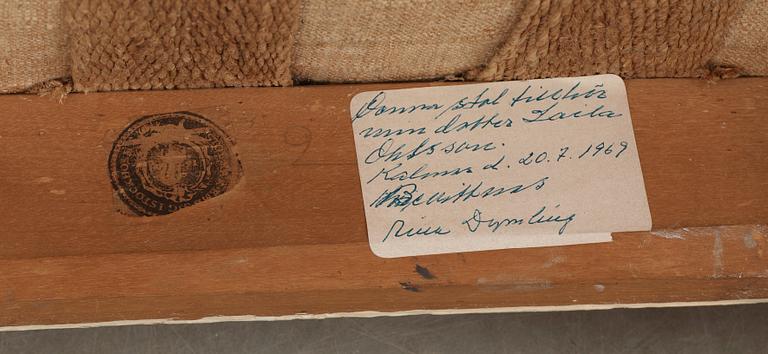 Denna stol tillhör
min dotter Laila
Ohlsson.
Kalmar d. 20.7.1969
Bevittnas
Dymling